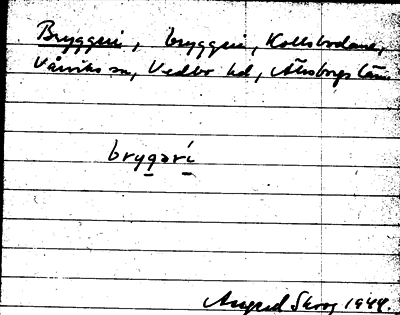 Bryggeri, bryggeri, Kollsbodane,
Vårviks sn, Vedbo hd, Älvsborgs län
brygərí
Astrid Skoog 1944.